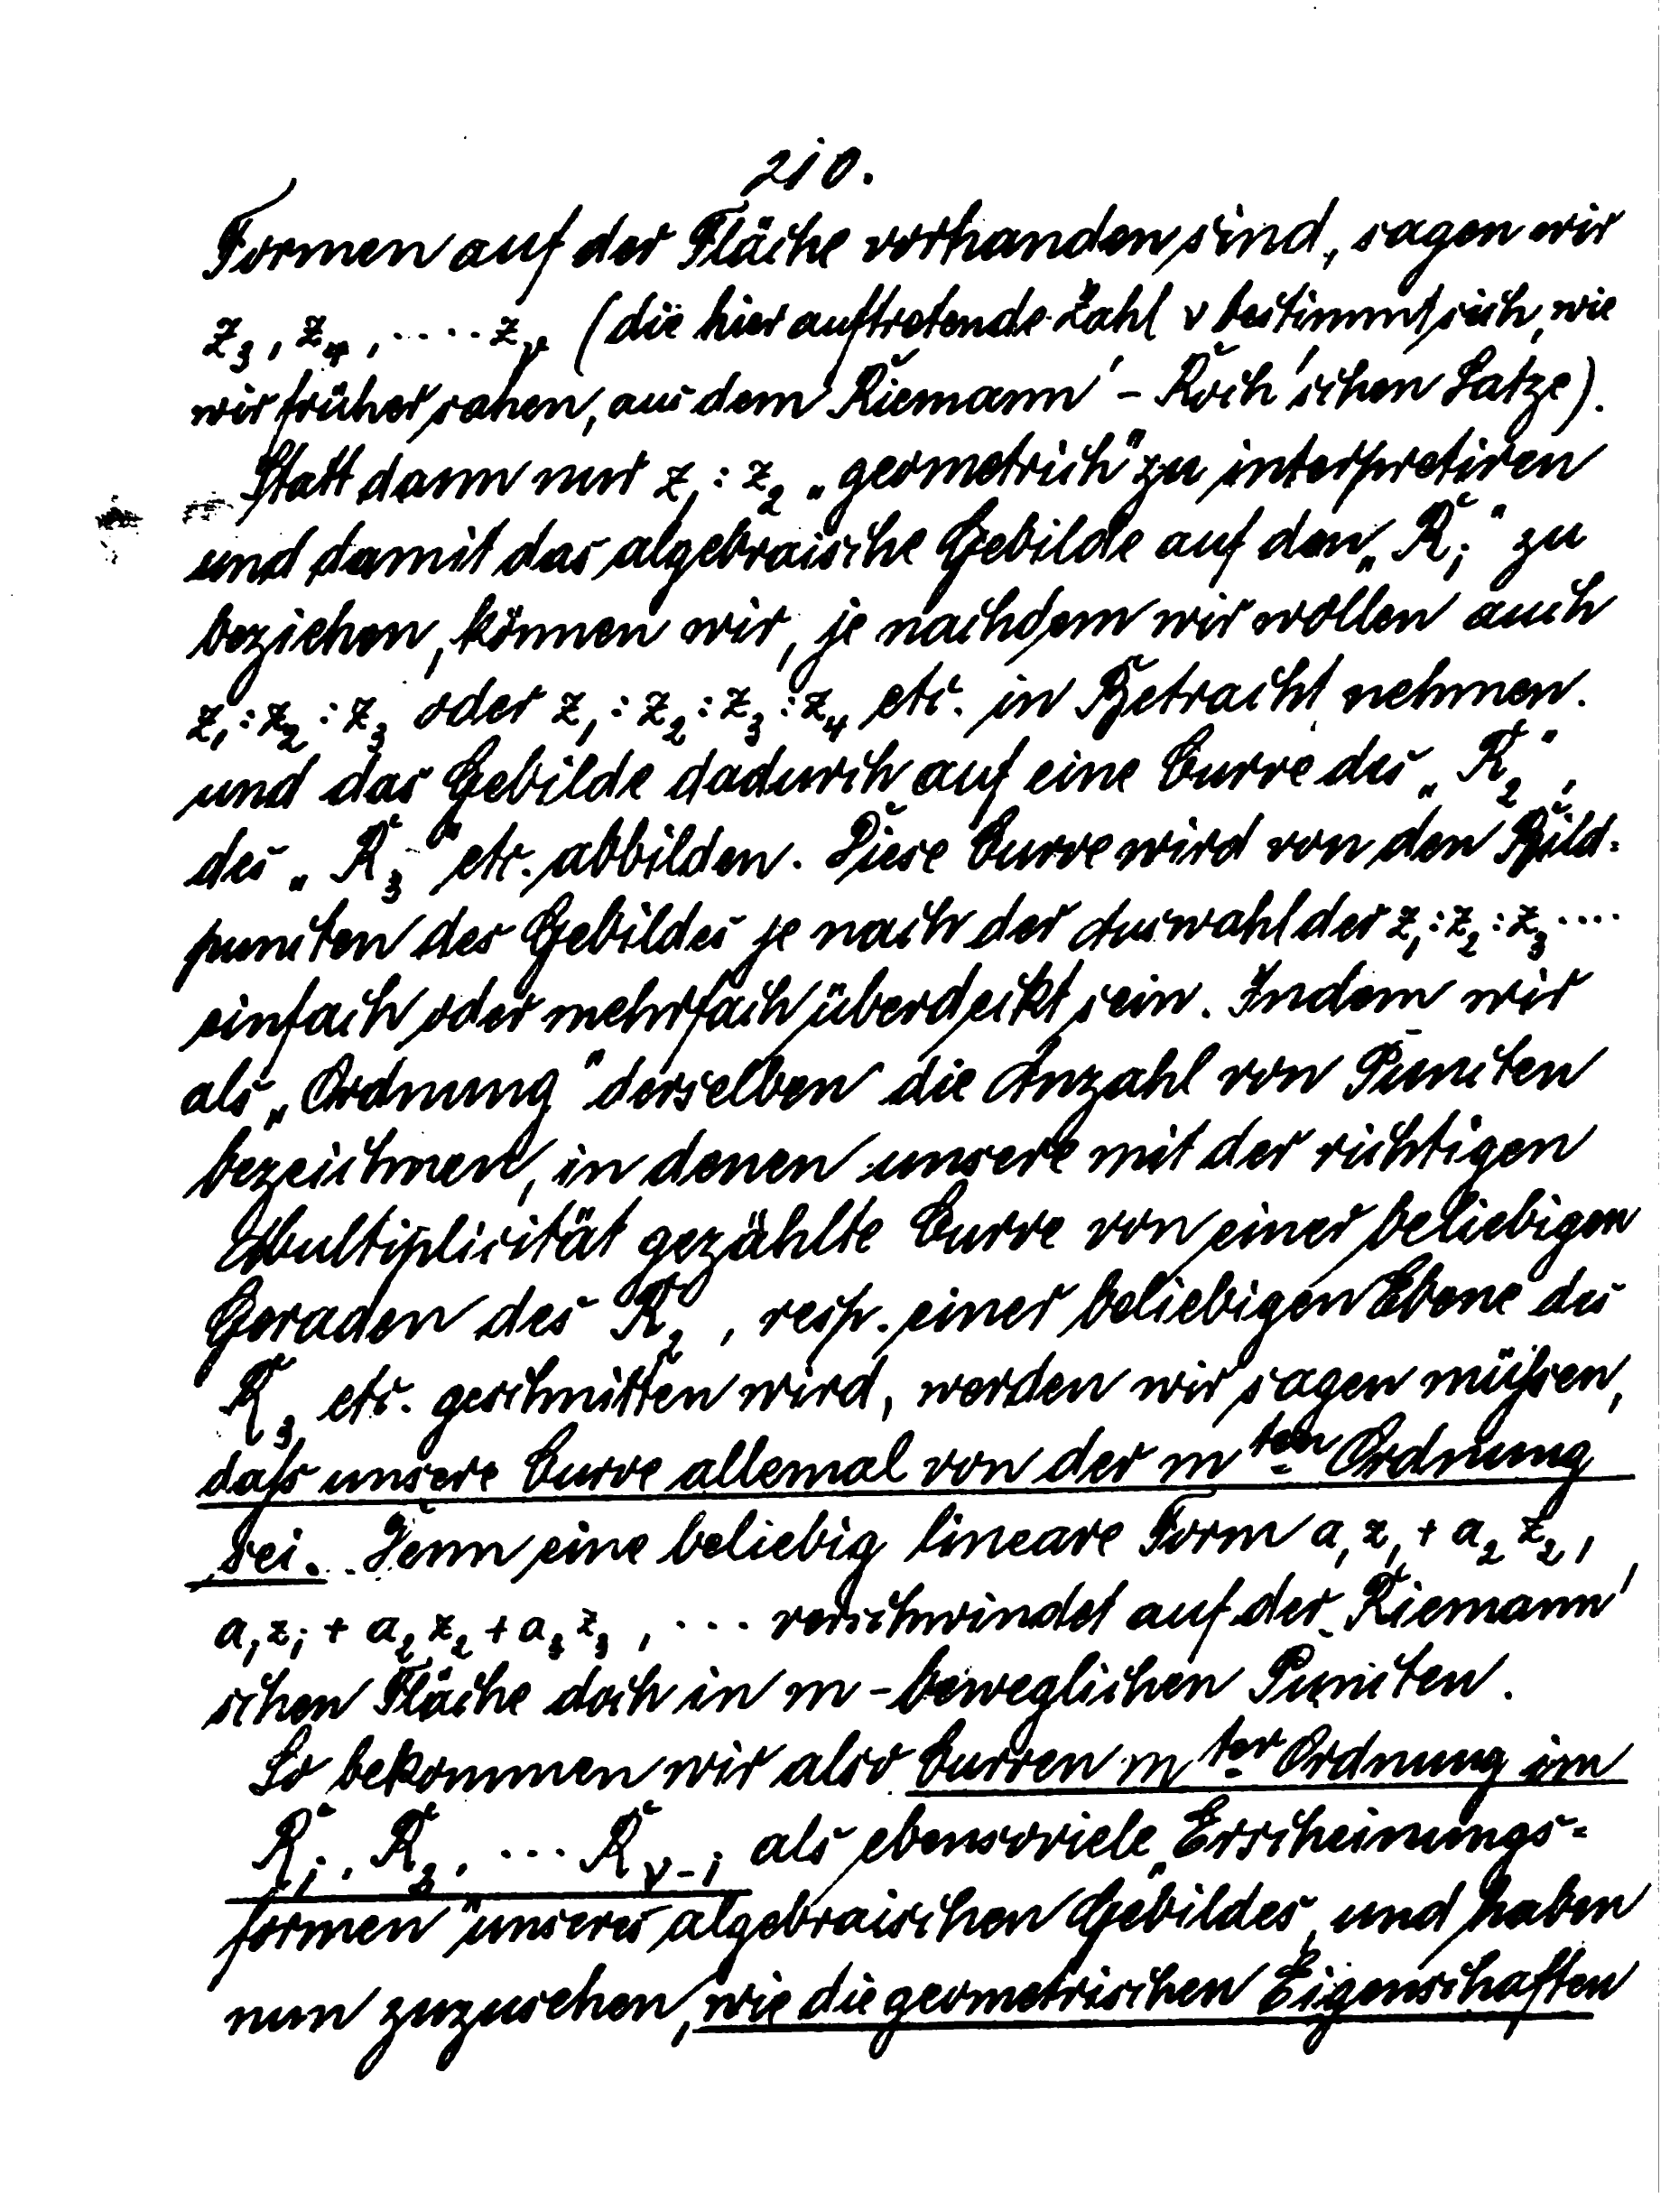 210.
Formen auf der Fläche vorhanden sind, sagen wir
z₃, z₄, .... z_ν (die hier auftretende Zahl ν bestimmt sich, wie
wir früher sahen, aus dem Riemann' - Roch'schen Satze).
Statt dann nur z₁ : z₂ „geometrisch" zu interpretiren
und damit das algebraische Gebilde auf den „R₁" zu
beziehen, können wir, je nachdem wir wollen auch
z₁ : z₂ : z₃ oder z₁ : z₂ : z₃ : z₄ etc. in Betracht nehmen.
und das Gebilde dadurch auf eine Curve des „R₂",
des „R₃" etc. abbilden. Diese Curve wird von den Bild-
puncten des Gebildes je nach der Auswahl der z₁ : z₂ : z₃ ....
einfach oder mehrfach überdeckt sein. Indem wir
als „Ordnung" derselben die Anzahl von Puncten
bezeichnen, in denen unsere mit der richtigen
Multiplicität gezählte Curve von einer beliebigen
Geraden des R₂, resp. einer beliebigen Ebene des
R₃ etc. geschnitten wird, werden wir sagen müssen,
dass unsere Curve allemal von der m ten Ordnung
sei. Denn eine beliebig lineare Form a₁z₁ + a₂z₂,
a₁z₁ + a₂z₂ + a₃z₃, ... verschwindet auf der Riemann'
schen Fläche doch in m - beweglichen Puncten.
So bekommen wir also Curven m ter Ordnung im
R₁, R₂, ... R_ν-1 als ebensoviele „Erscheinungs-
formen" unseres algebraischen Gebildes, und haben
nun zuzusehen, wie die geometrischen Eigenschaften